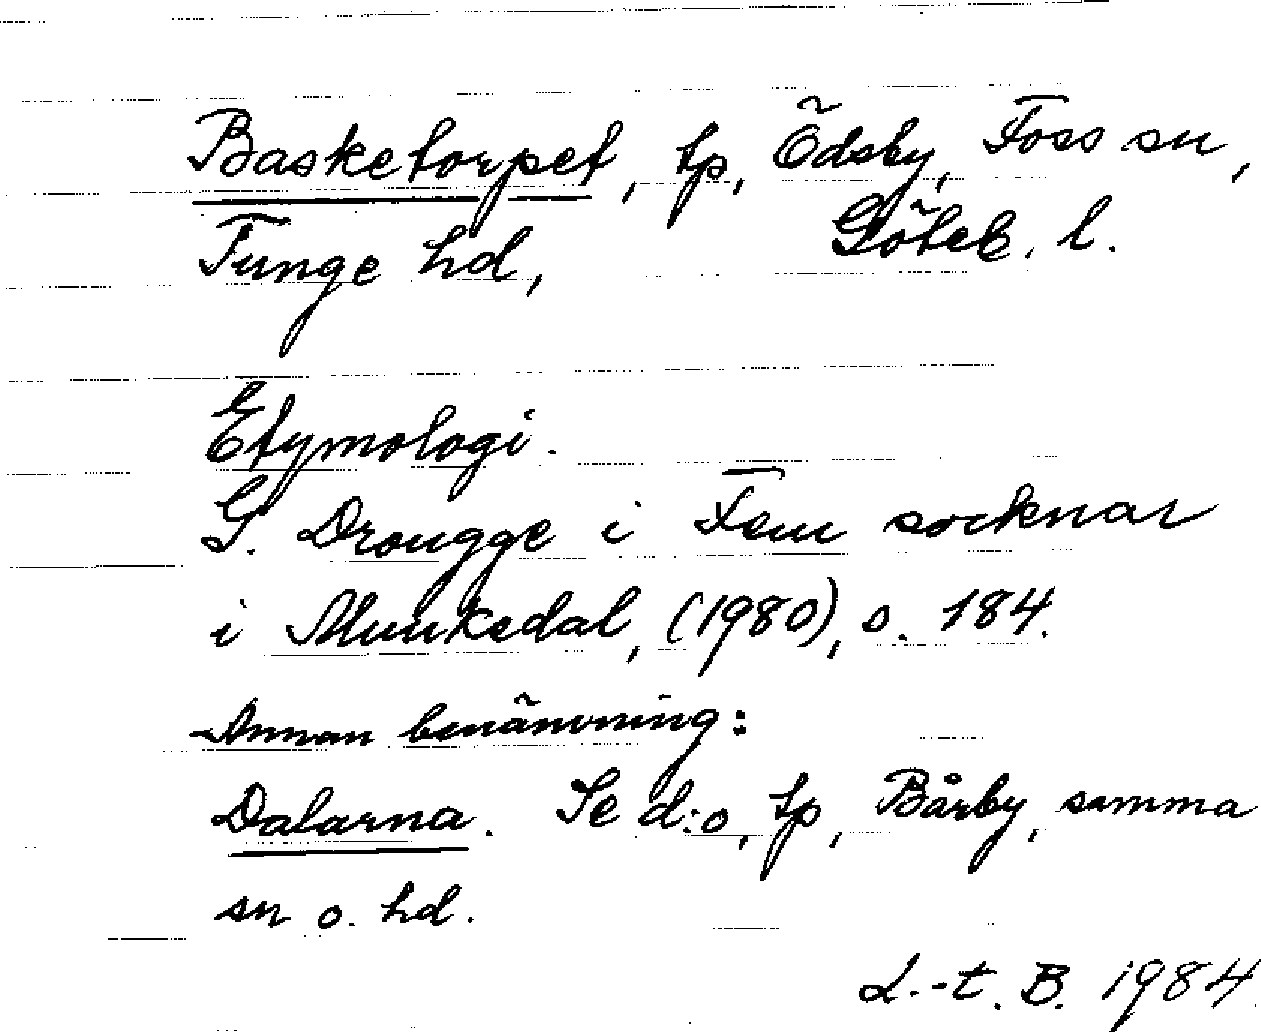 Basketorpet, tp, Ödsby, Foss sn,
Tunge hd, Göteb. l.
Etymologi.
G. Drougge i Fem socknar
i Munkedal, (1980), s. 184.
Annan benämning:
Dalarna. Se d:o, tp, Bärby, samma
sn o. hd.
L.-t. B. 1984.